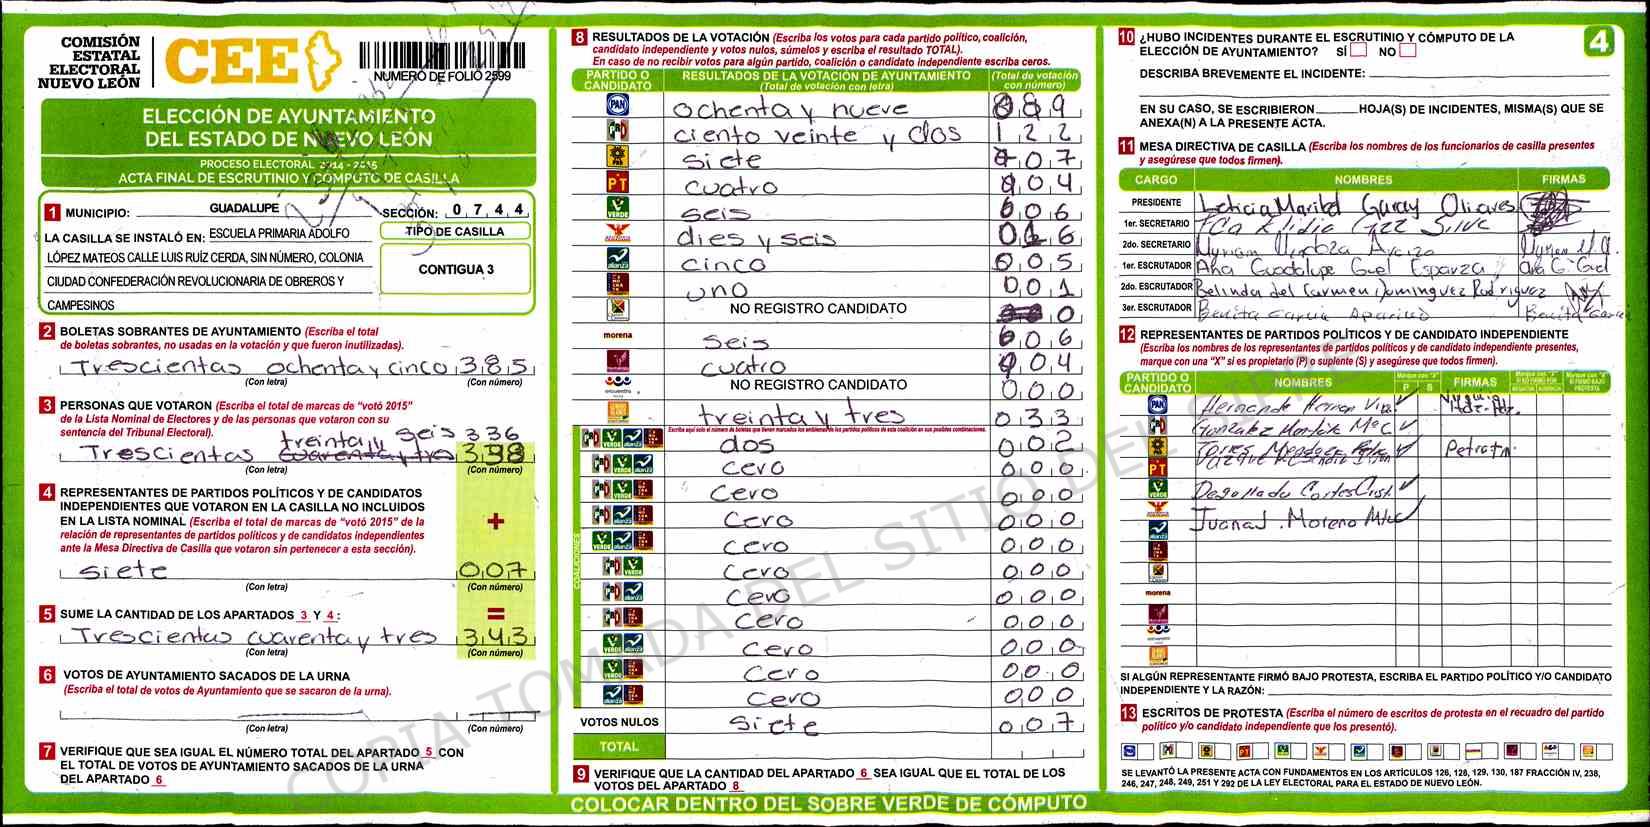 COMISIÓN
ESTATAL
ELECTORAL
NUEVO LEÓN
CEE
NUMERO DE FOLIO 2599
ELECCIÓN DE AYUNTAMIENTO
DEL ESTADO DE NUEVO LEÓN
PROCESO ELECTORAL 2014 - 2015
ACTA FINAL DE ESCRUTINIO Y CÓMPUTO DE CASILLA
1 MUNICIPIO: GUADALUPE SECCIÓN: 0 7 4 4
LA CASILLA SE INSTALÓ EN: ESCUELA PRIMARIA ADOLFO
LÓPEZ MATEOS CALLE LUIS RUÍZ CERDA, SIN NÚMERO, COLONIA
CIUDAD CONFEDERACIÓN REVOLUCIONARIA DE OBREROS Y
CAMPESINOS
TIPO DE CASILLA
CONTIGUA 3
2 BOLETAS SOBRANTES DE AYUNTAMIENTO (Escriba el total
de boletas sobrantes, no usadas en la votación y que fueron inutilizadas).
Trescientas ochenta y cinco 3 8 5
(Con letra) (Con número)
3 PERSONAS QUE VOTARON (Escriba el total de marcas de “votó 2015”
de la Lista Nominal de Electores y de las personas que votaron con su
sentencia del Tribunal Electoral).
treinta y seis 336
Trescientas cuarenta y tres
(Con letra) (Con número)
4 REPRESENTANTES DE PARTIDOS POLÍTICOS Y DE CANDIDATOS
INDEPENDIENTES QUE VOTARON EN LA CASILLA NO INCLUIDOS
EN LA LISTA NOMINAL (Escriba el total de marcas de “votó 2015” de la
relación de representantes de partidos políticos y de candidatos independientes
ante la Mesa Directiva de Casilla que votaron sin pertenecer a esta sección).
+
siete 0 0 7
(Con letra) (Con número)
5 SUME LA CANTIDAD DE LOS APARTADOS 3 Y 4 : =
Trescientas cuarenta y tres 3 4 3
(Con letra) (Con número)
6 VOTOS DE AYUNTAMIENTO SACADOS DE LA URNA
(Escriba el total de votos de Ayuntamiento que se sacaron de la urna).
(Con letra) (Con número)
7 VERIFIQUE QUE SEA IGUAL EL NÚMERO TOTAL DEL APARTADO 5 CON
EL TOTAL DE VOTOS DE AYUNTAMIENTO SACADOS DE LA URNA
DEL APARTADO 6
8 RESULTADOS DE LA VOTACIÓN (Escriba los votos para cada partido político, coalición,
candidato independiente y votos nulos, súmelos y escriba el resultado TOTAL).
En caso de no recibir votos para algún partido, coalición o candidato independiente escriba ceros.
PARTIDO O CANDIDATO
RESULTADOS DE LA VOTACIÓN DE AYUNTAMIENTO
(Total de votación con letra)
(Total de votación con número)
PAN ochenta y nueve 0 8 9
PRI ciento veinte y dos 1 2 2
PRD siete 0 7
PT cuatro 0 4
VERDE seis 0 6
dies y seis 0 6
alianza cinco 0 5
uno 0 0 1
NO REGISTRO CANDIDATO 0
morena seis 0 6
cuatro 0 4
NO REGISTRO CANDIDATO 0 0 0
treinta y tres 0 3 3
Escriba aquí solo el número de boletas que tienen marcados los emblemas de los partidos políticos de esta coalición en sus posibles combinaciones.
COALICIONES
dos 0 0 2
cero 0 0 0
cero 0 0 0
cero 0 0 0
cero 0 0 0
cero 0 0 0
cero 0 0 0
cero 0 0 0
cero 0 0 0
cero 0 0 0
cero 0 0 0
VOTOS NULOS siete 0 0 7
TOTAL
9 VERIFIQUE QUE LA CANTIDAD DEL APARTADO 6 SEA IGUAL QUE EL TOTAL DE LOS
VOTOS DEL APARTADO 8
COLOCAR DENTRO DEL SOBRE VERDE DE CÓMPUTO
4
10 ¿HUBO INCIDENTES DURANTE EL ESCRUTINIO Y CÓMPUTO DE LA
ELECCIÓN DE AYUNTAMIENTO? SÍ NO
DESCRIBA BREVEMENTE EL INCIDENTE:
EN SU CASO, SE ESCRIBIERON HOJA(S) DE INCIDENTES, MISMA(S) QUE SE
ANEXA(N) A LA PRESENTE ACTA.
11 MESA DIRECTIVA DE CASILLA (Escriba los nombres de los funcionarios de casilla presentes
y asegúrese que todos firmen).
CARGO NOMBRES FIRMAS
PRESIDENTE Leticia Maribel Garay Olivares
1er. SECRETARIO
2do. SECRETARIO
1er. ESCRUTADOR Ana Guadalupe Guel Esparza Ana G. Guel
2do. ESCRUTADOR Belinda del Carmen Dominguez Rodriguez
3er. ESCRUTADOR Benita Garcia Aparicio Benita Garcia
12 REPRESENTANTES DE PARTIDOS POLÍTICOS Y DE CANDIDATO INDEPENDIENTE
(Escriba los nombres de los representantes de partidos políticos y de candidato independiente presentes,
marque con una “X” si es propietario (P) o suplente (S) y asegúrese que todos firmen).
PARTIDO O CANDIDATO NOMBRES P S FIRMAS
PAN
Gonzalez
PT
Juana J. Moreno
morena
SI ALGÚN REPRESENTANTE FIRMÓ BAJO PROTESTA, ESCRIBA EL PARTIDO POLÍTICO Y/O CANDIDATO
INDEPENDIENTE Y LA RAZÓN:
13 ESCRITOS DE PROTESTA (Escriba el número de escritos de protesta en el recuadro del partido
político y/o candidato independiente que los presentó).
SE LEVANTÓ LA PRESENTE ACTA CON FUNDAMENTOS EN LOS ARTÍCULOS 126, 128, 129, 130, 187 FRACCIÓN IV, 238,
246, 247, 248, 249, 251 Y 292 DE LA LEY ELECTORAL PARA EL ESTADO DE NUEVO LEÓN.